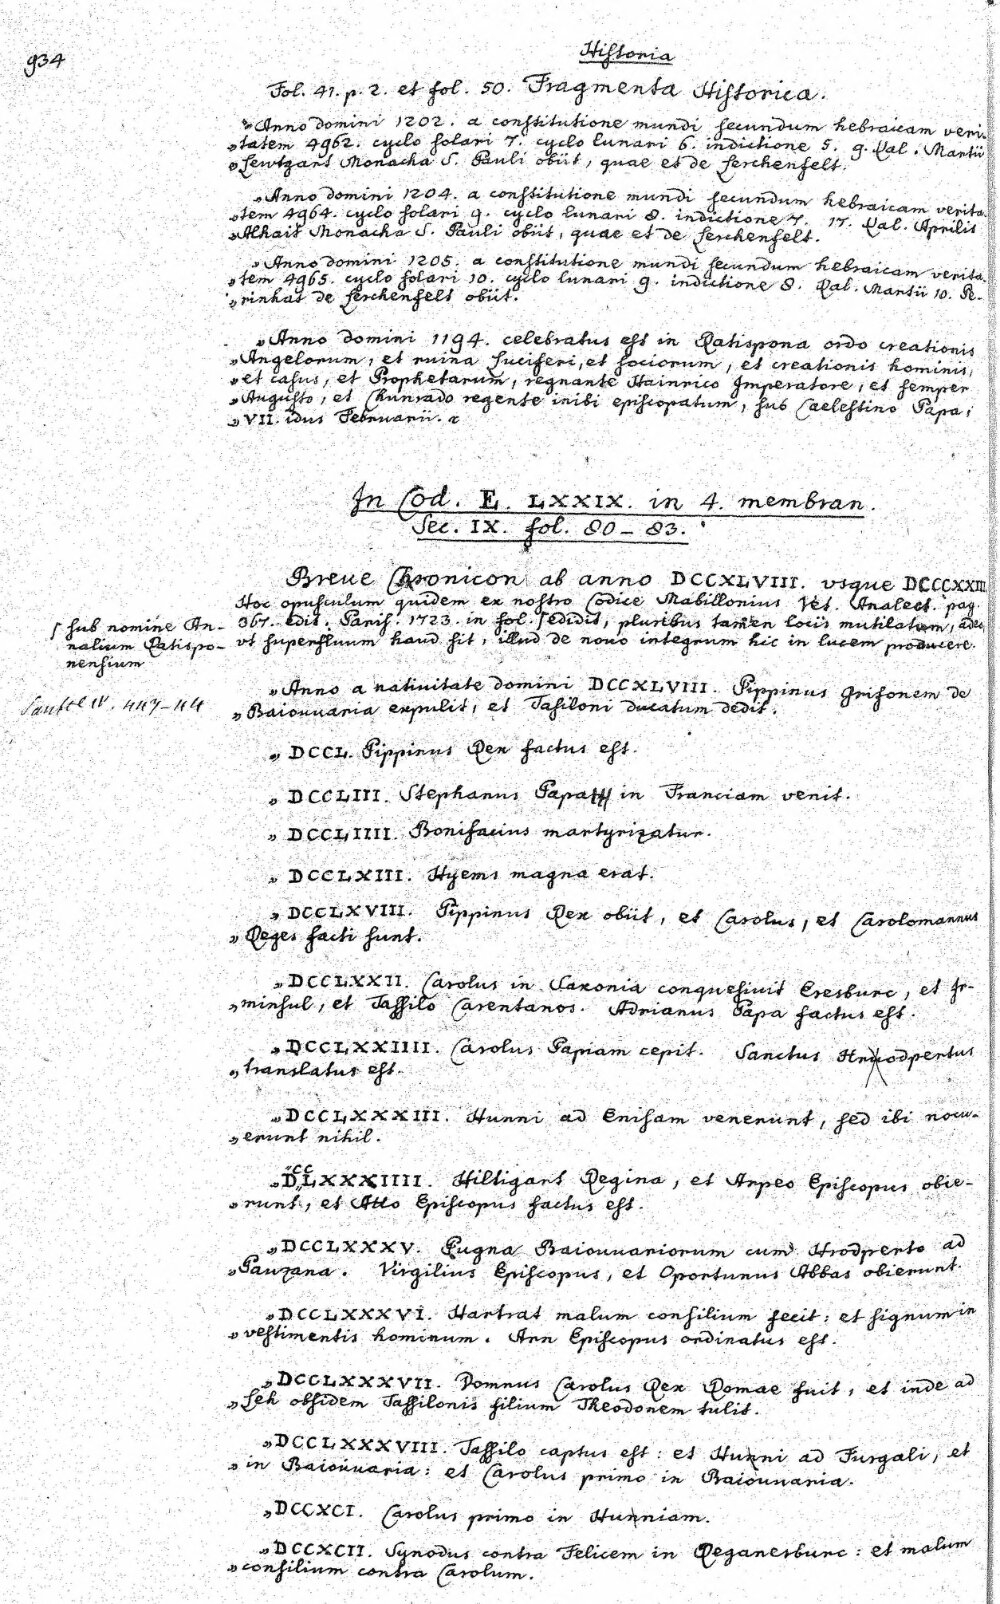 934
Historia
Fol. 41. p. 2. et fol. 50. Fragmenta Historica.
„Anno domini 1202. a constitutione mundi secundum hebraicam veri-
„tatem 4962. cyclo solari 7. cyclo lunari 6. indictione 5. 9. Kal. Martii
„Lewtgart Monacha S. Pauli obiit, quae et de Lerchenfelt.
„Anno domini 1204. a constitutione mundi secundum hebraicam verita-
„tem 4964. cyclo solari 9. cyclo lunari 8. indictione 7. 17. Kal. Aprilis
„Alhait Monacha S. Pauli obiit, quae et de Lerchenfelt.
„Anno domini 1205. a constitutione mundi secundum hebraicam verita-
„tem 4965. cyclo solari 10. cyclo lunari 9. indictione 8. Kal. Martii 10. Pe-
„rinhat de Lerchenfelt obiit.
„Anno domini 1194. celebratus est in Ratispona ordo creationis
„Angelorum, et ruina Luciferi, et sociorum, et creationis hominis,
„et casus, et Prophetarum, regnante Hainrico Imperatore, et semper
„Augusto, et Chunrado regente inibi episcopatum, sub Caelestino Papa,
„VII. idus Februarii.
In Cod. E. LXXIX. in 4. membran.
Sec. IX. fol. 80 – 83.
Breue Chronicon ab anno DCCXLVIII. vsque DCCCXXIII
Hoc opusculum quidem ex nostro Codice Mabillonius Vet. Analect. pag.
367. edit. Paris. 1723. in fol. ſ edidit, pluribus tamen locis mutilatum, adeo,
vt superfluum haud sit, illud de nouo integrum hic in lucem producere.
ſ sub nomine An-
nalium Ratispo-
nensium
„Anno a natiuitate domini DCCXLVIII. Pippinus Grifonem de
„Baiouuaria expulit, et Tasiloni ducatum dedit.
„DCCL. Pippinus Rex factus est.
„DCCLIII. Stephanus Papa in Franciam venit.
„DCCLIIII. Bonifacius martyrizatur.
„DCCLXIII. Hyems magna erat.
„DCCLXVIII. Pippinus Rex obiit, et Carolus, et Carolomannus
„Reges facti sunt.
„DCCLXXII. Carolus in Saxonia conquesiuit Eresburc, et Ir-
„minsul, et Tassilo Carentanos. Adrianus Papa factus est.
„DCCLXXIIII. Carolus Papiam cepit. Sanctus Hruodpertus
„translatus est.
„DCCLXXXIII. Hunni ad Enisam venerunt, sed ibi nocu-
„erunt nihil.
„DCCLXXXIIII. Hiltigart Regina, et Arpeo Episcopus obie-
„runt, et Atto Episcopus factus est.
„DCCLXXXV. Pugna Baiouuariorum cum Hrodperto ad
„Pauzana. Virgilius Episcopus, et Oportunus Abbas obierunt.
„DCCLXXXVI. Hartrat malum consilium fecit: et signum in
„vestimentis hominum. Arn Episcopus ordinatus est.
„DCCLXXXVII. Domnus Carolus Rex Romae fuit, et inde ad
„Leh obsidem Tassilonis filium Theodonem tulit.
„DCCLXXXVIII. Tassilo captus est: et Hunni ad Furgali, et
„in Baiouuaria: et Carolus primo in Baiouuaria.
„DCCXCI. Carolus primo in Hunniam.
„DCCXCII. Synodus contra Felicem in Reganesburc: et malum
„consilium contra Carolum.